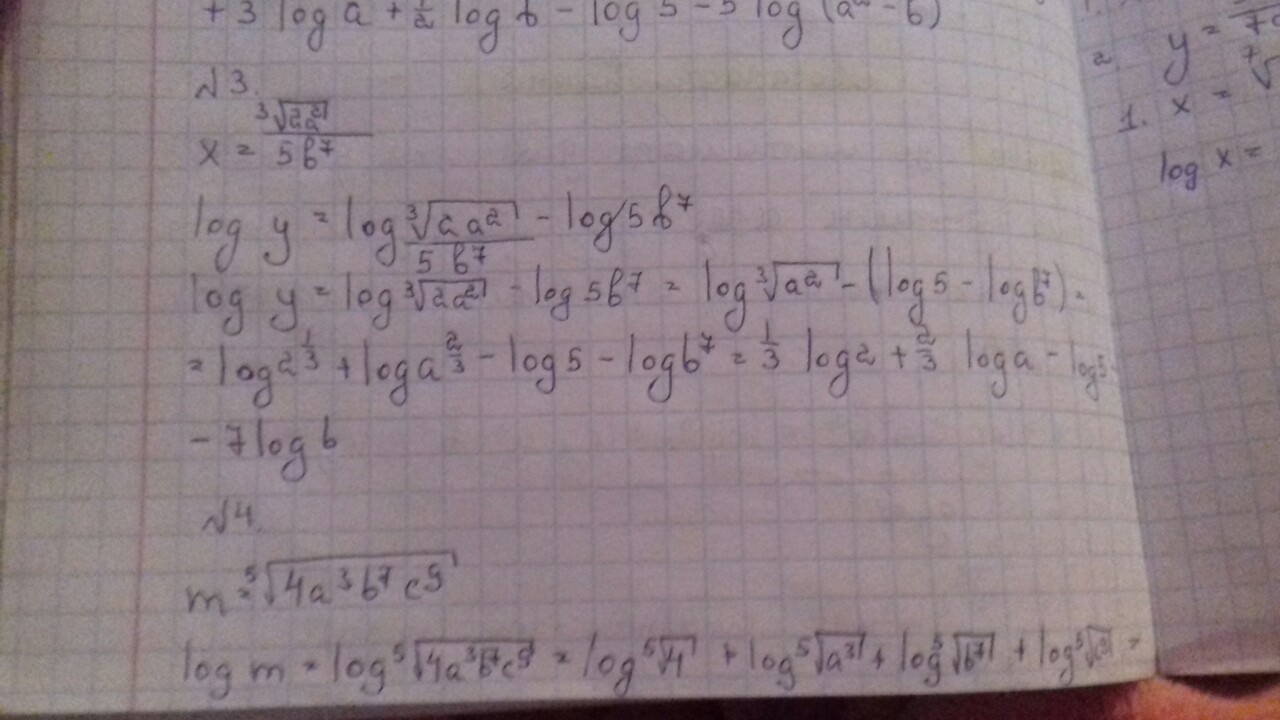 + 3 log a + 1/2 log b - log 5 - 5 log (a² - b)
№3.
x = ³√(2a²) / 5b⁷
log y = log ³√(2a²) / 5b⁷ - log 5b⁷
log y = log ³√(2a²) - log 5b⁷ = log ³√(a²) - (log 5 - log b⁷) =
= log 2^(1/3) + log a^(2/3) - log 5 - log b⁷ = 1/3 log 2 + 2/3 log a - log 5 -
- 7 log b
№4.
m = ⁵√(4a³b⁷c⁹)
log m = log ⁵√(4a³b⁷c⁹) = log ⁵√4 + log ⁵√(a³) + log ⁵√(b⁷) + log ⁵√(c⁹) =
2. y =
1. x =
log x =